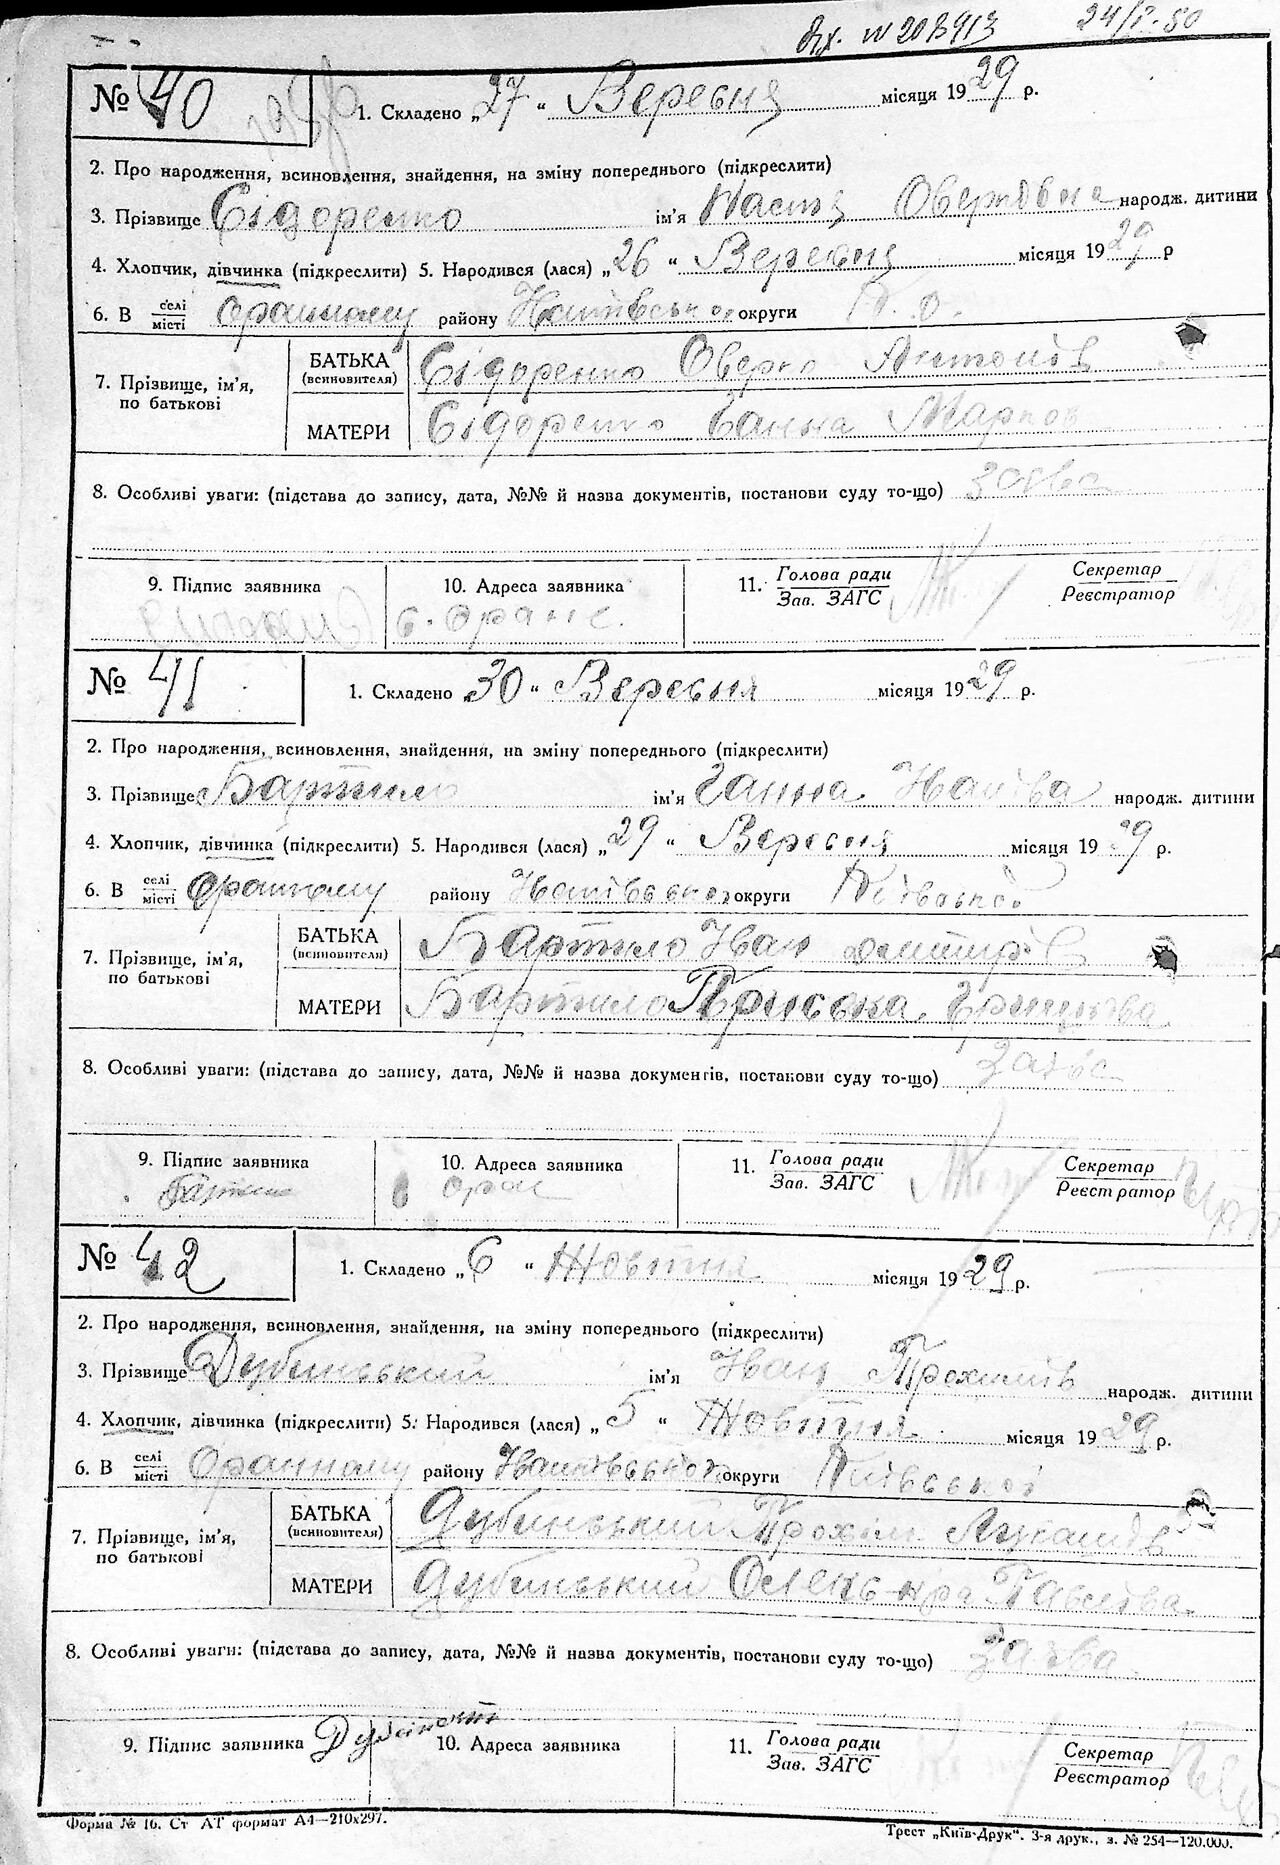 24/I-50
№ 40 1. Складено „27“ Вересня місяця 1929 р.
2. Про народження, всиновлення, знайдення, на зміну попереднього (підкреслити)
3. Прізвище Сідоренко ім'я Настя Оверківна народж. дитини
4. Хлопчик, дівчинка (підкреслити) 5. Народився (лася) „26“ Вересня місяця 1929 р
6. В селі/місті Оранному району округи К. о.
7. Прізвище, ім'я, по батькові
БАТЬКА (всиновителя) Сідоренко Оверко Антонів
МАТЕРИ Сідоренко Ганна Марков
8. Особливі уваги: (підстава до запису, дата, №№ й назва документів, постанови суду то-що) заява
9. Підпис заявника 10. Адреса заявника 11. Голова ради Секретар
Зав. ЗАГС Реєстратор
с. Оране
№ 41 1. Складено 30“ Вересня місяця 1929 р.
2. Про народження, всиновлення, знайдення, на зміну попереднього (підкреслити)
3. Прізвище Бартило ім'я Ганна Іванівна народж. дитини
4. Хлопчик, дівчинка (підкреслити) 5. Народився (лася) „29“ Вересня місяця 1929 р.
6. В селі/місті Оранному району округи Київської
7. Прізвище, ім'я, по батькові
БАТЬКА (всиновителя) Бартило Іван Дмитрів
МАТЕРИ Бартило Пріська Грицьова
8. Особливі уваги: (підстава до запису, дата, №№ й назва документів, постанови суду то-що) заява
9. Підпис заявника 10. Адреса заявника 11. Голова ради Секретар
Зав. ЗАГС Реєстратор
Бартило Оран
№ 42 1. Складено „6“ Жовтня місяця 1929 р.
2. Про народження, всиновлення, знайдення, на зміну попереднього (підкреслити)
3. Прізвище Дубинський ім'я Іван Трохимів народж. дитини
4. Хлопчик, дівчинка (підкреслити) 5. Народився (лася) „5“ Жовтня місяця 1929 р.
6. В селі/місті Оранному району округи Київської
7. Прізвище, ім'я, по батькові
БАТЬКА (всиновителя) Дубинський Трохим Лукашів
МАТЕРИ Дубинський Павлова
8. Особливі уваги: (підстава до запису, дата, №№ й назва документів, постанови суду то-що) заява
9. Підпис заявника 10. Адреса заявника 11. Голова ради Секретар
Зав. ЗАГС Реєстратор
Форма № 16. Ст АТ формат А4—210х297.
Трест „Київ-Друк“. 3-я друк., з. № 254—120.000.